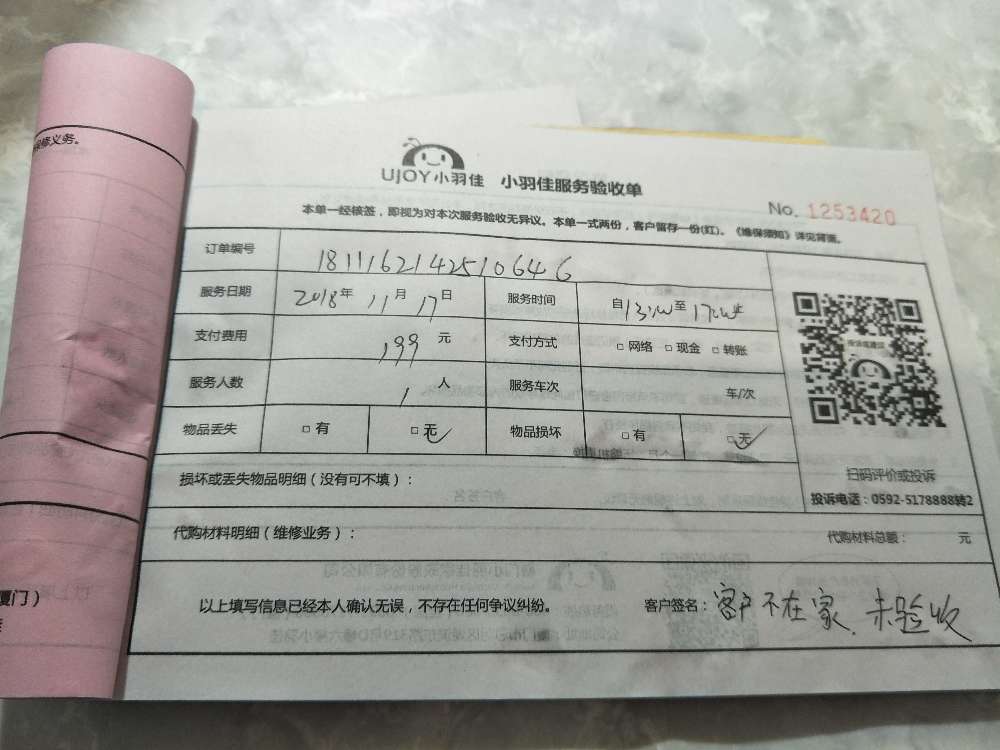 保修义务。
UJOY小羽佳 小羽佳服务验收单
No. 1253420
本单一经核签，即视为对本次服务验收无异议。本单一式两份，客户留存一份(红)。《维保须知》详见背面。
订单编号 1811162142510646
服务日期 2018年 11月 17日 服务时间 自 至
支付费用 199 元 支付方式 □ 网络 □ 现金 □ 转账
服务人数 1 人 服务车次 车/次
物品丢失 □ 有 □ 无 物品损坏 □ 有 □ 无
扫码评价或投诉
投诉电话：0592-5178888转2
损坏或丢失物品明细（没有可不填）：
代购材料明细（维修业务）： 代购材料总额： 元
以上填写信息已经本人确认无误，不存在任何争议纠纷。 客户签名：客户不在家、未验收
厦门）